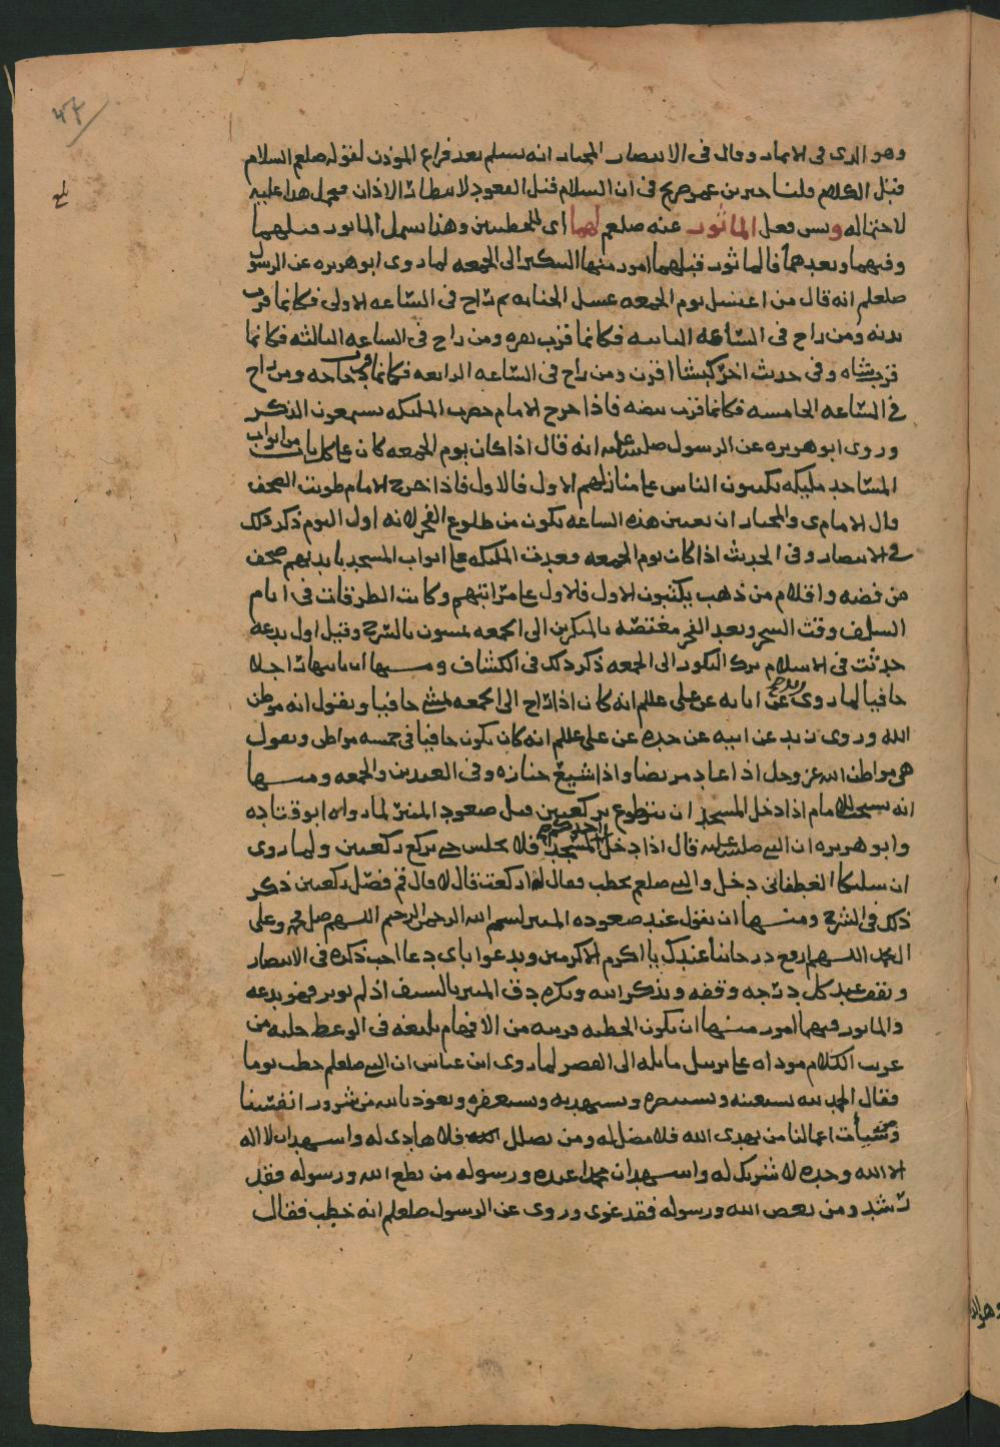 وهو الذى فى الاثمار وقال فى الانتصار المختار انه يسلم بعد فراغ المؤذن لقوله صلعم السلام
قبل الكلام قلنا خبر بن عمر صريح فى ان السلام قبل القعود لانتظار الاذان فيحمل هذا عليه
لاحتماله وندب فعل الماثور عنه صلعم لهما اى للخطبتين وهذا يشمل الماثور قبلهما
وفيهما وبعدهما فالماثور قبلهما امور منها التبكير الى الجمعه لما روى ابو هريره عن الرسول
صلعلم انه قال من اغتسل يوم الجمعه غسل الجنابه ثم راح فى الساعه الاولى فكانما قرب
بدنه ومن راح فى الساعه الثانيه فكانما قرب بقره ومن راح فى الساعه الثالثه فكانما
قرب شاه وفى حديث اخر كبشا اقرن ومن راح فى الساعه الرابعه فكانما قرب دجاجه ومن راح
فى الساعه الخامسه فكانما قرب بيضه فاذا خرج الامام حضرت الملئكه يستمعون الذكر
وروى ابو هريره عن الرسول صلى الله عليه انه قال اذا كان يوم الجمعه كان على كل باب من ابواب
المساجد مليكه يكتبون الناس على منازلهم الاول فالاول فاذا خرج الامام طويت الصحف
قال الامام ى والمختار ان تعيين هذه الساعه يكون من طلوع الفجر لانه اول اليوم ذكر ذلك
فى الانتصار وفى الحديث اذا كان يوم الجمعه وقعدت الملئكه على ابواب المسجد بايديهم صحف
من فضه واقلام من ذهب يكتبون الاول فالاول على مراتبهم وكانت الطرقات فى ايام
السلف وقت السحر وبعد الفجر مغتصه بالمبكرين الى الجمعه يمشون بالسرج وقيل اول بدعه
حدثت فى الاسلام ترك البكور الى الجمعه ذكر ذلك فى الكشاف ومنها اتيانها راجلا
حافيا لما روى زيد عن ابايه عن على عللم انه كان اذا راح الى الجمعه مشى حافيا ويقول انه موطن
الله وروى زيد عن ابيه عن جده عن على عللم انه كان يكون حافيا فى خمسه مواطن ويقول
هى مواطن الله عز وجل اذا عاد مريضا واذا شيع جنازه وفى العيدين والجمعه ومنها
انه يستحب للامام اذا دخل المسجد ان يتطوع بركعتين قبل صعود المنبر لما رواه ابو قتاده
وابو هريره ان النبى صلى الله عليه قال اذا دخل احدكم المسجد فلا يجلس حتى يركع ركعتين ولما روى
ان سليكا الغطفانى دخل والنبى صلعم يخطب فقال له اركعت قال لا قال قم فصل ركعتين ذكر
ذلك فى الشرح ومنها ان يقول عند صعوده المنبر بسم الله الرحمن الرحيم اللهم صل على محمد وعلى
ال محمد اللهم ارفع درجاتنا عندك يا اكرم الاكرمين ويدعوا باى دعا احب ذكره فى الانتصار
ويقف عند كل درجه وقفه ويذكر الله ويكره دق المنبر بالسيف اذ لم يوثر فهو بدعه
والماثور فيهما امور منها ان يكون الخطبه قريبه من الافهام بليغه فى الوعظ خليه من
غريب الكلام موداه على ترسل مايله الى القصر لما روى ابن عباس ان النبى صلعلم خطب يوما
فقال الحمد لله نستعينه ونستنصره ونستهديه ونستغفره ونعوذ بالله من شرور انفسنا
ومن سيأت اعمالنا من يهدى الله فلا مضل له ومن يضلل فلا هادى له واشهد ان لا اله
الا الله وحده لا شريك له واشهد ان محمدا عبده ورسوله من يطع الله ورسوله فقد
رشد ومن يعص الله ورسوله فقد غوى وروى عن الرسول صلعلم انه خطب فقال